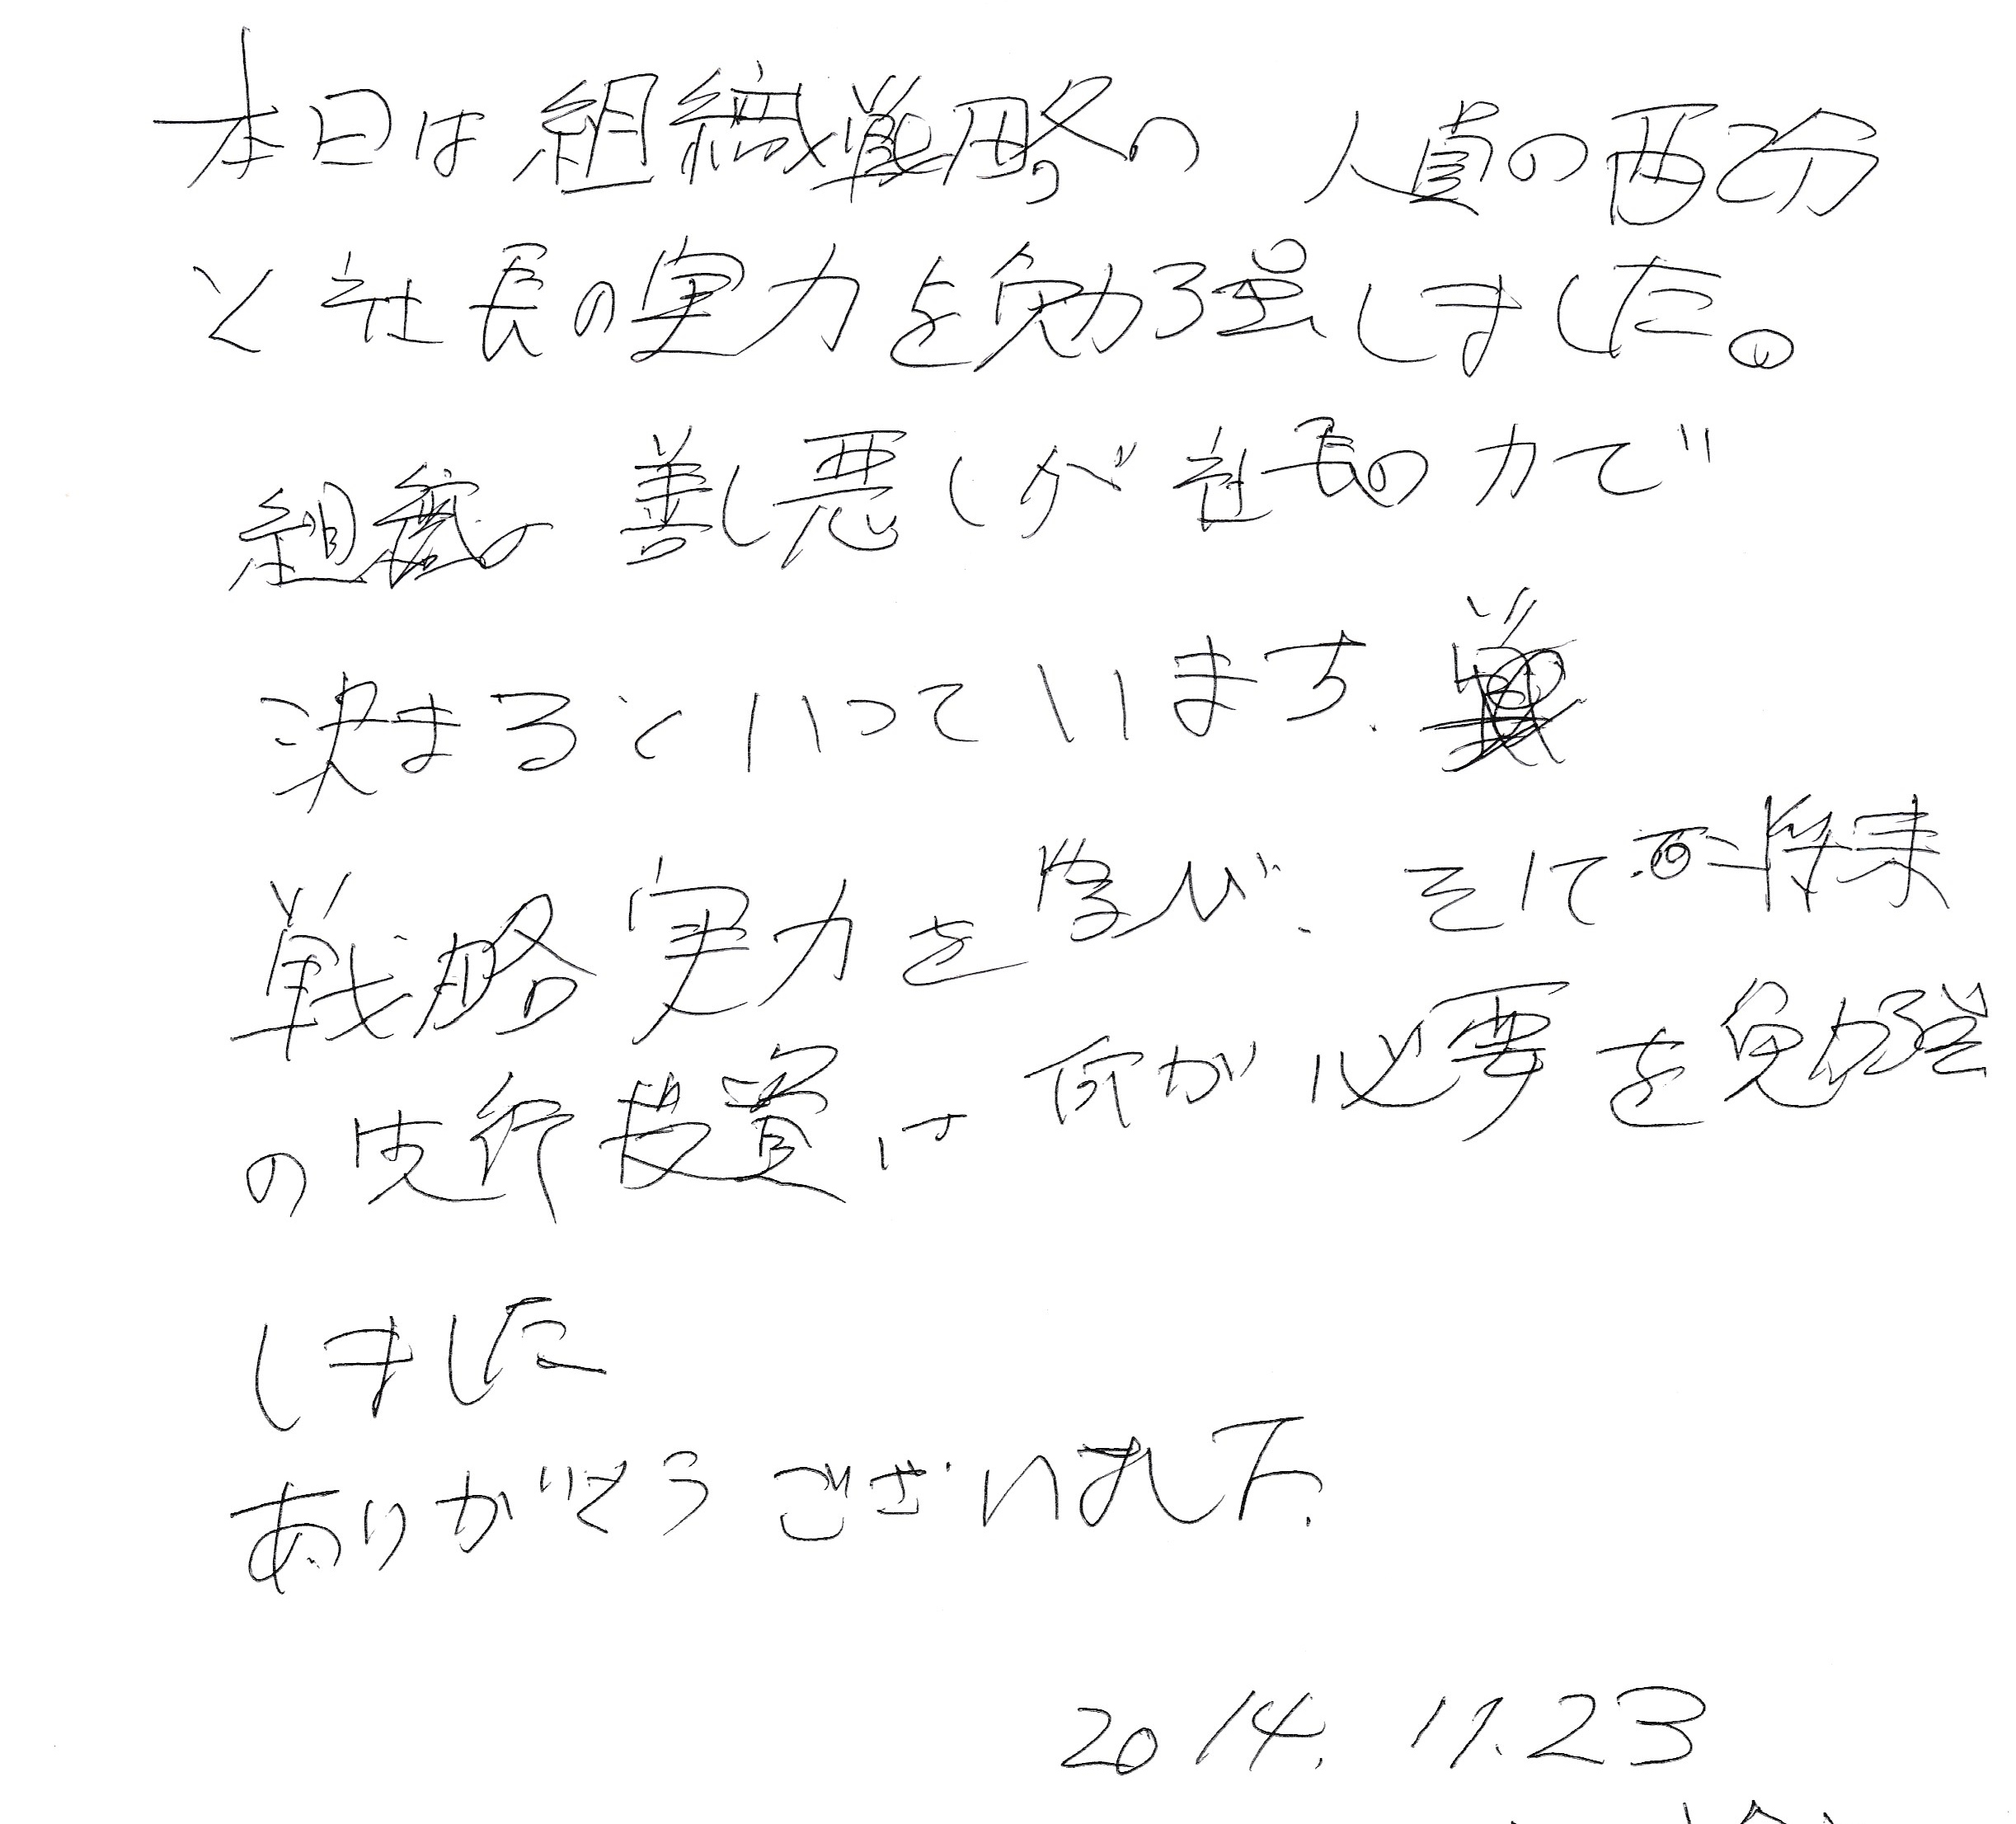 本日は組織戦略の 人員の配分
と社長の実力を勉強しました。
組織の善し悪しが社長の力で
決まるといっています.
戦略実力を学び、そして 将来
の先行投資は何が必要を勉強
しました
ありがとうございました.
2014.11.23